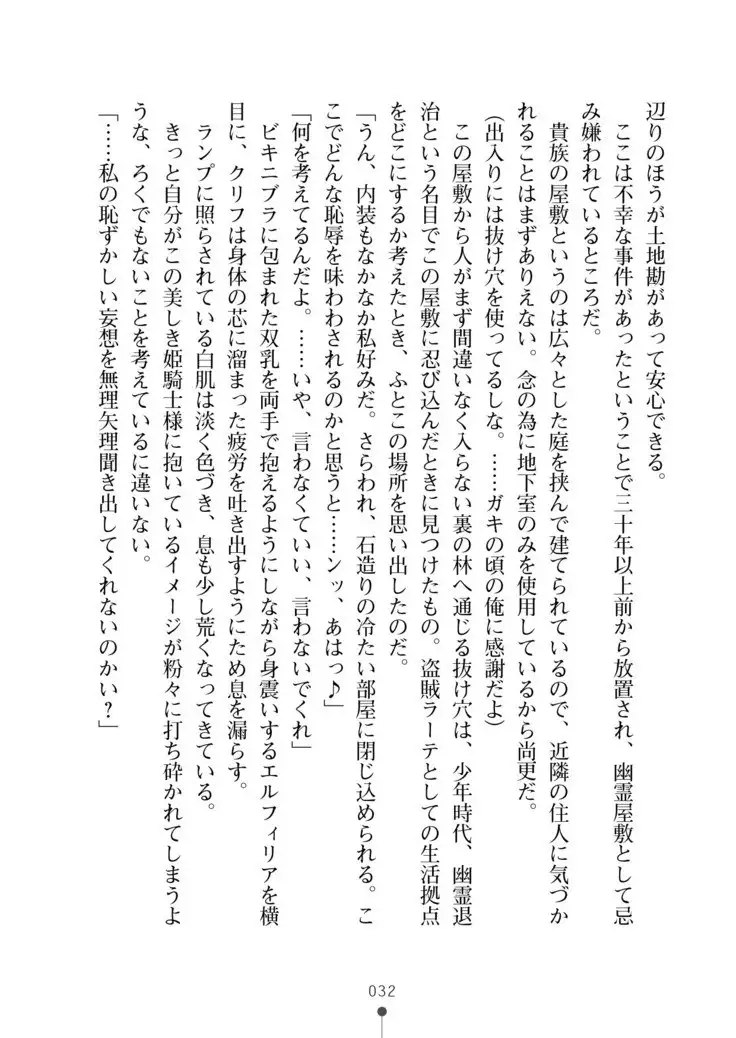 辺りのほうが土地勘があって安心できる。
　ここは不幸な事件があったということで三十年以上前から放置され、幽霊屋敷として忌
み嫌われているところだ。
　貴族の屋敷というのは広々とした庭を挟んで建てられているので、近隣の住人に気づか
れることはまずありえない。念の為に地下室のみを使用しているから尚更だ。
（出入りには抜け穴を使ってるしな。……ガキの頃の俺に感謝だよ）
　この屋敷から人がまず間違いなく入らない裏の林へ通じる抜け穴は、少年時代、幽霊退
治という名目でこの屋敷に忍び込んだときに見つけたもの。盗賊ラーテとしての生活拠点
をどこにするか考えたとき、ふとこの場所を思い出したのだ。
「うん、内装もなかなか私好みだ。さらわれ、石造りの冷たい部屋に閉じ込められる。こ
こでどんな恥辱を味わわされるのかと思うと……ンッ、あはっ♪」
「何を考えてるんだよ。……いや、言わなくていい、言わないでくれ」
　ビキニブラに包まれた双乳を両手で抱えるようにしながら身震いするエルフィリアを横
目に、クリフは身体の芯に溜まった疲労を吐き出すようにため息を漏らす。
　ランプに照らされている白肌は淡く色づき、息も少し荒くなってきている。
　きっと自分がこの美しき姫騎士様に抱いているイメージが粉々に打ち砕かれてしまうよ
うな、ろくでもないことを考えているに違いない。
「……私の恥ずかしい妄想を無理矢理聞き出してくれないのかい？」
032